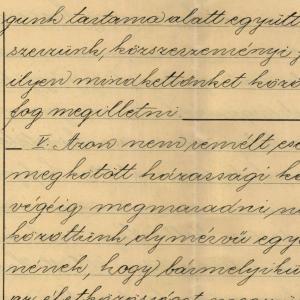 gunk tartama alatt együtt
szerzünk, közszerzeményi
ilyen mindkettőnket közö
fog megilletni.
— V. Azon nem remélt ese
megkötött házassági kö
végéig megmaradni n
közöttünk olymérvü egye
nének, hogy bármelyikü
az életközösséget